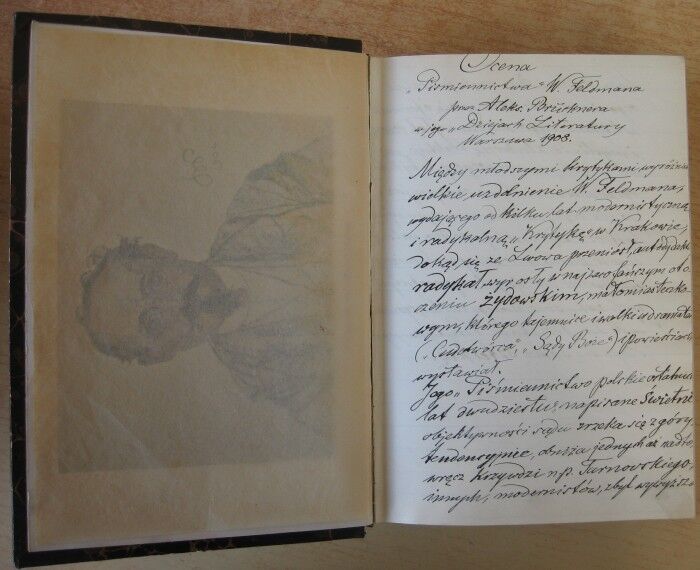 Ocena
„Piśmiennictwa" W. Feldmana
przez Aleks. Brücknera
w jego „Dziejach Literatury
Warszawa 1908.
Między młodszymi krytykami wyróżnia
wielkie uzdolnienie W. Feldmana,
wydającego od kilku lat modernistyczną
i radykalną „Krytykę" w Krakowie,
dokąd się ze Lwowa przeniósł, autodydakta
radykał, wyrosły w najzacofańszym oto
czeniu żydowskim, małomiasteczko
wym, którego tajemnice i walki u dramatac
(„Cudotwórca", „Sądy Boże") i powieściach
wystawiał.
Jego „Piśmiennictwo polskie ostatnich
lat dwudziestu", napisane świetnie
objektywności sądu zrzeka się z góry,
tendencyjnie, obniża jednych aż nadto,
wręcz krzywdzi np. Tarnowskiego,
innych, modernistów, zbyt wywyższa